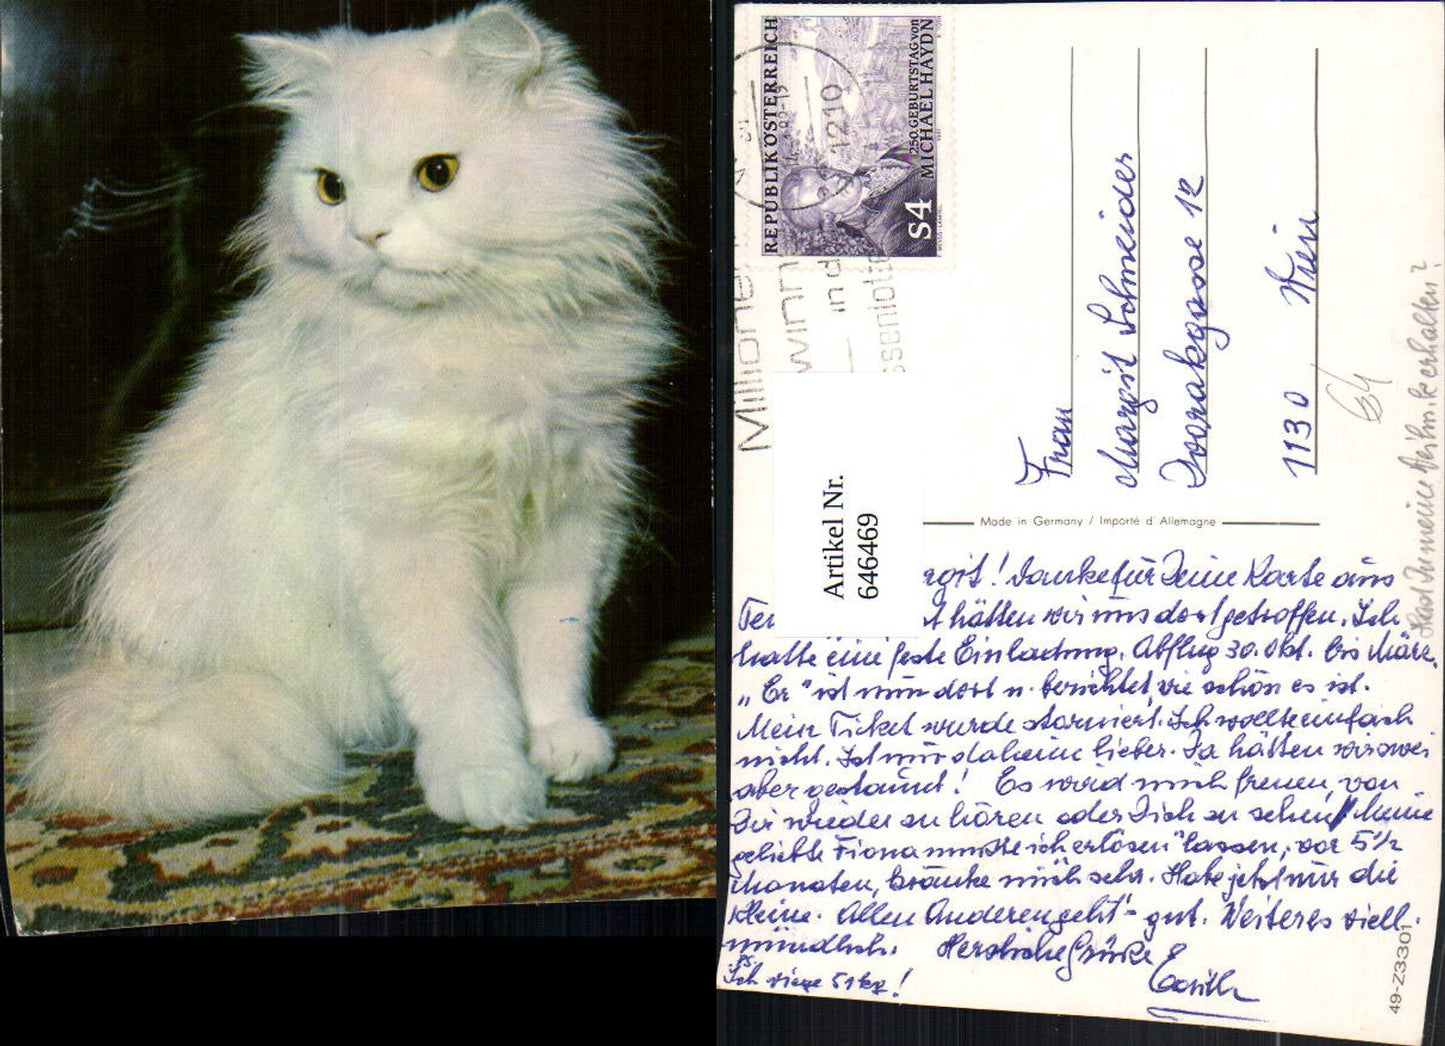 REPUBLIK ÖSTERREICH
250. GEBURTSTAG von
MICHAEL HAYDN
S4
1210
Millionen
winn
in d
ssenlotte
Artikel Nr.
646469
Frau
Margit Schneider
Dvorakgasse 12
1130 Wien
64
Hast Du meine Weihn.k. erhalten?
Made in Germany / Importé d'Allemagne
rgit! Danke für Deine Karte aus
Ter t hätten wir uns dort getroffen. Ich
hatte eine feste Einladung. Abflug 30. Okt. bis März.
„Er" ist nun dort u. berichtet, wie schön es ist.
Mein Ticket wurde storniert. Ich wollte einfach
nicht. Ist mir daheim lieber. Da hätten wir zwei
aber gestaunt! Es wird mich freuen, von
Dir wieder zu hören oder Dich zu sehen! Meine
geliebte Fiona musste ich "erlösen" lassen, vor 5 1/2
Monaten, kränkte mich sehr. Habe jetzt nur die
Kleine. Allen Anderen geht's gut. Weiteres viell.
mündlich. Herzliche Grüße
Edith
PS
Ich wiege 51 kg!
49-Z3301